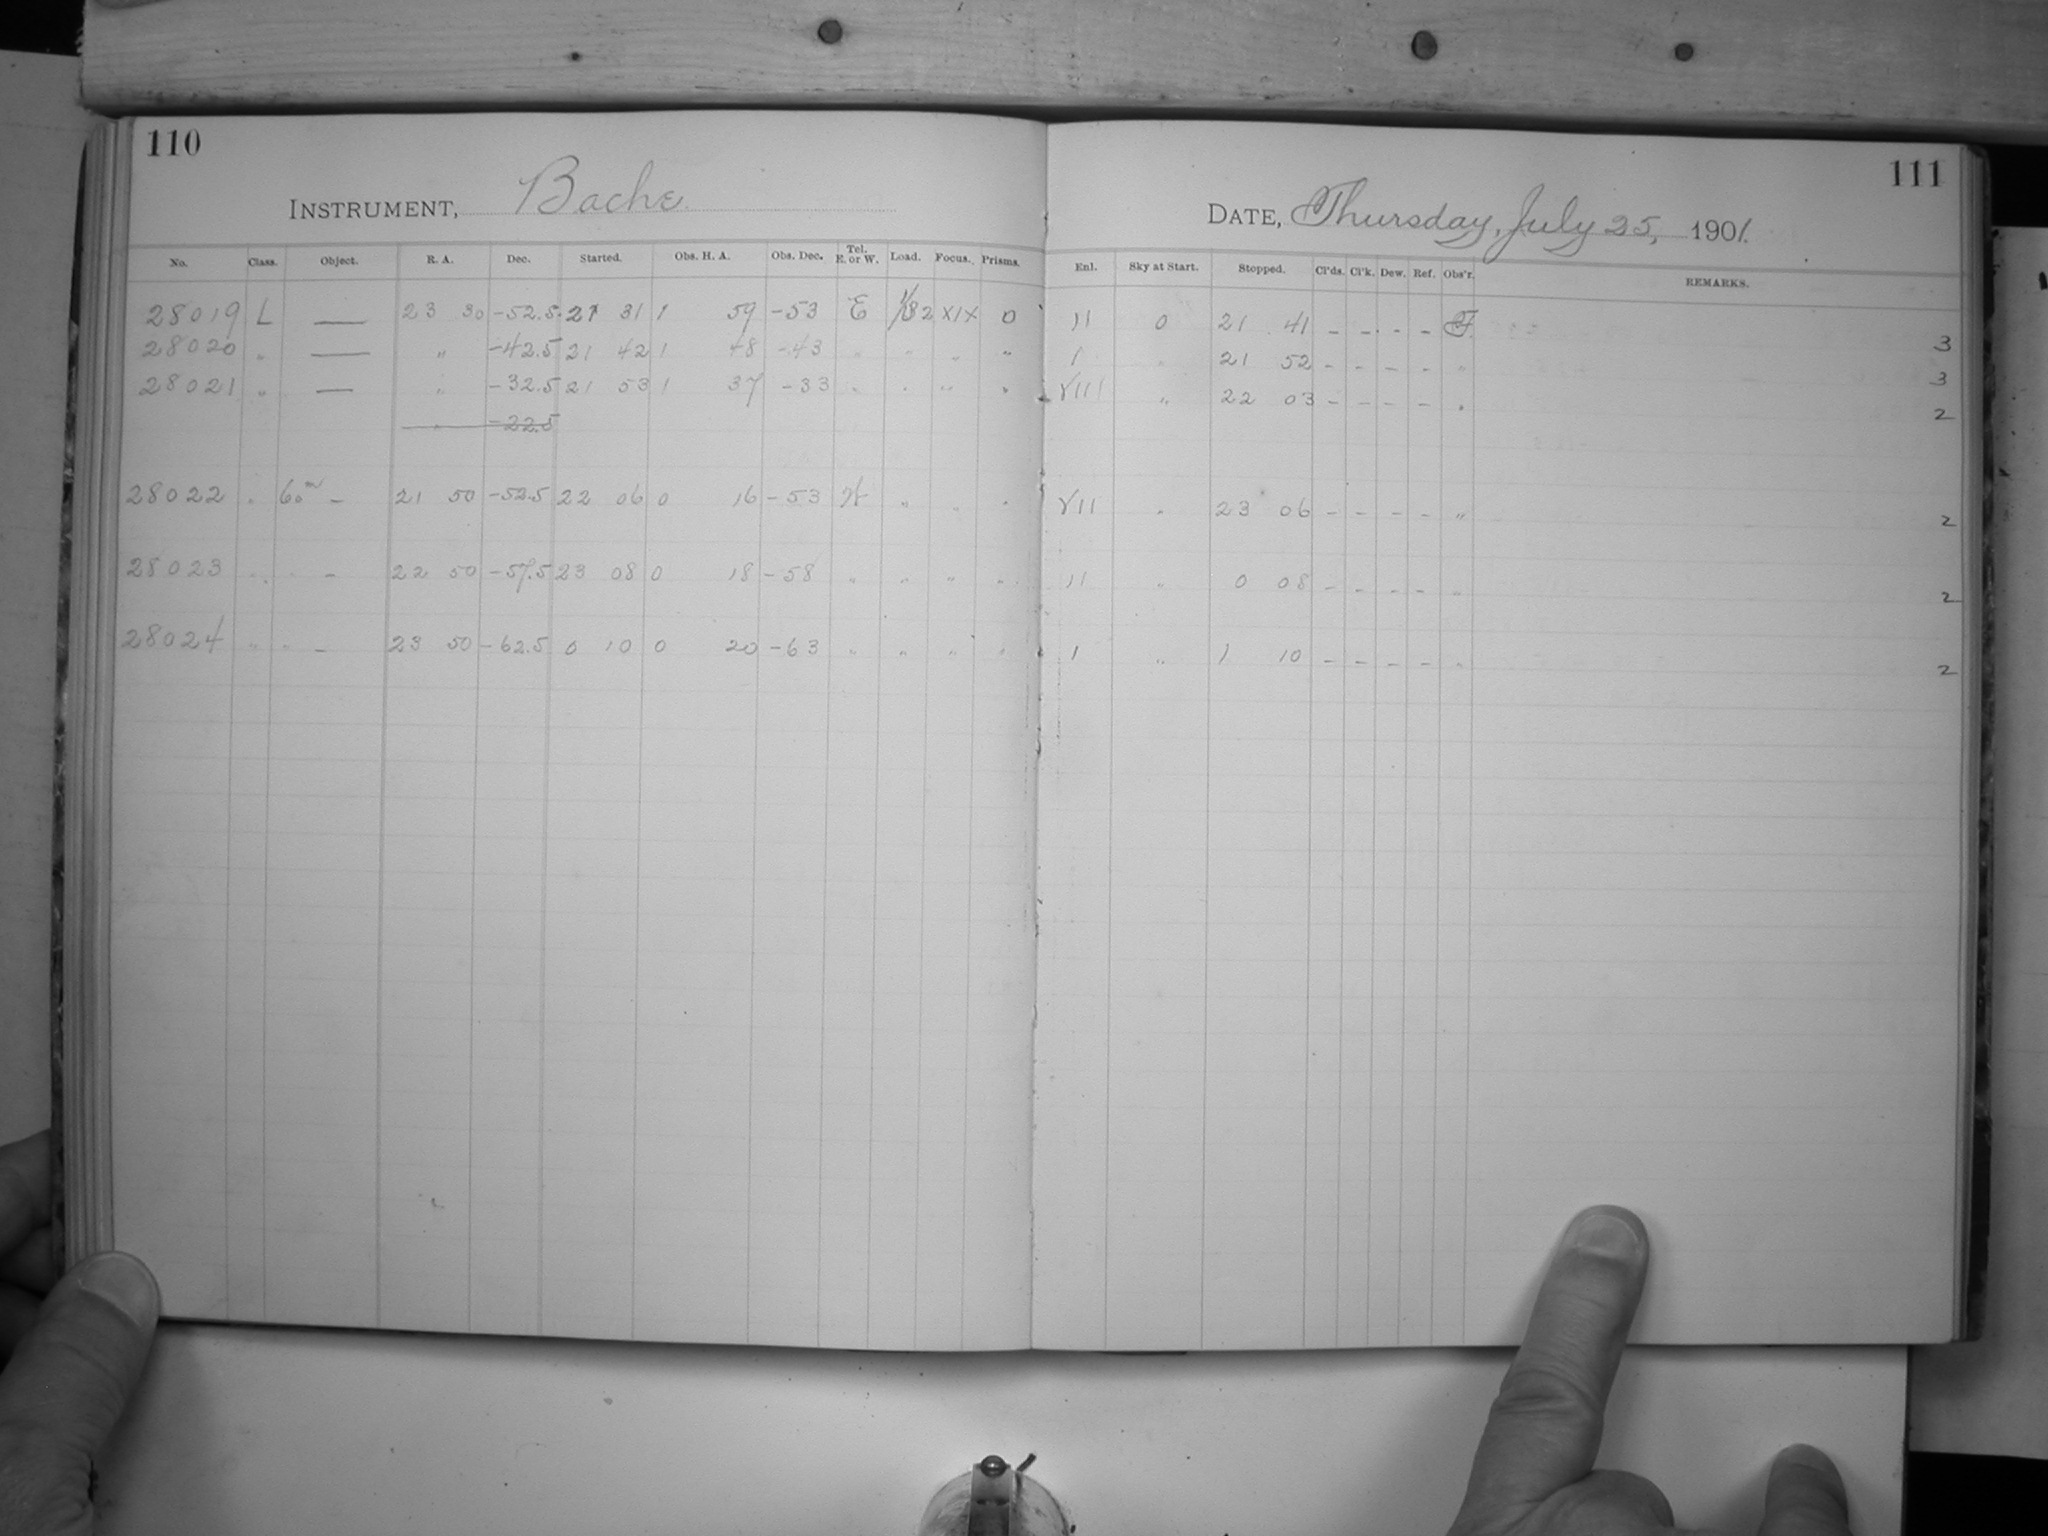 110
INSTRUMENT, Bache.
No. Class. Object. R. A. Dec. Started. Obs. H. A. Obs. Dec. Tel. E. or W. Load. Focus. Prisms.
28019 L — 23 30 -52.5 21 31 1 59 -53 E XIX 0
28020 " — " -42.5 21 42 1 48 -43 " " " "
28021 " — " -32.5 21 53 1 37 -33 " " " "
" -22.5
28022 " 60m — 21 50 -52.5 22 06 0 16 -53 W " " "
28023 " " — 22 50 -57.5 23 08 0 18 -58 " " " "
28024 " " — 23 50 -62.5 0 10 0 20 -63 " " " "
111
DATE, Thursday, July 25, 1901.
Enl. Sky at Start. Stopped. Cl'ds. Cl'k. Dew. Ref. Obs'r. REMARKS.
11 0 21 41 - - - - F. 3
1 " 21 52 - - - - " 3
VIII " 22 03 - - - - " 2
VII " 23 06 - - - - " 2
11 " 0 08 - - - - " 2
1 " 1 10 - - - - " 2